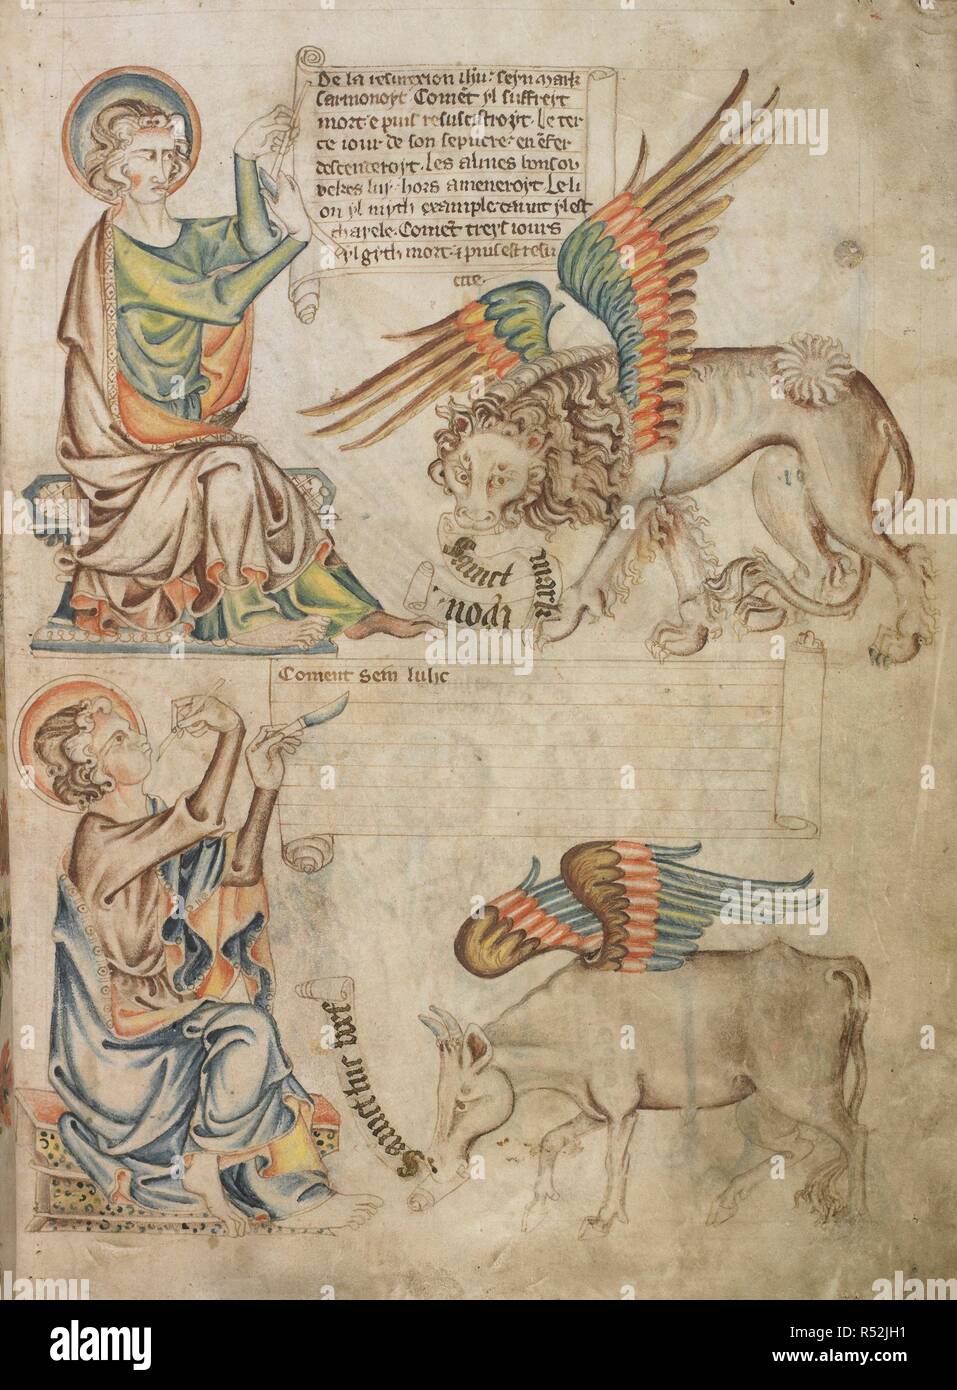 De la resurexion ihu: seyn mark
sarmonoyt. Comēt yl suffreyt
mort e puis resuscistroyt. Le ter
ce iour de son sepucre. en ēfer
descenderoyt. Les almes
luy hors ameneroyt. Le li
on yl myth example. yl est
Comēt treys iours
yl gyth mort. puis est resu
cite.
Sainct
mark
Coment sein luhc
Saunct luc
alamy
a
alamy
Image ID: R52JH1
www.alamy.com